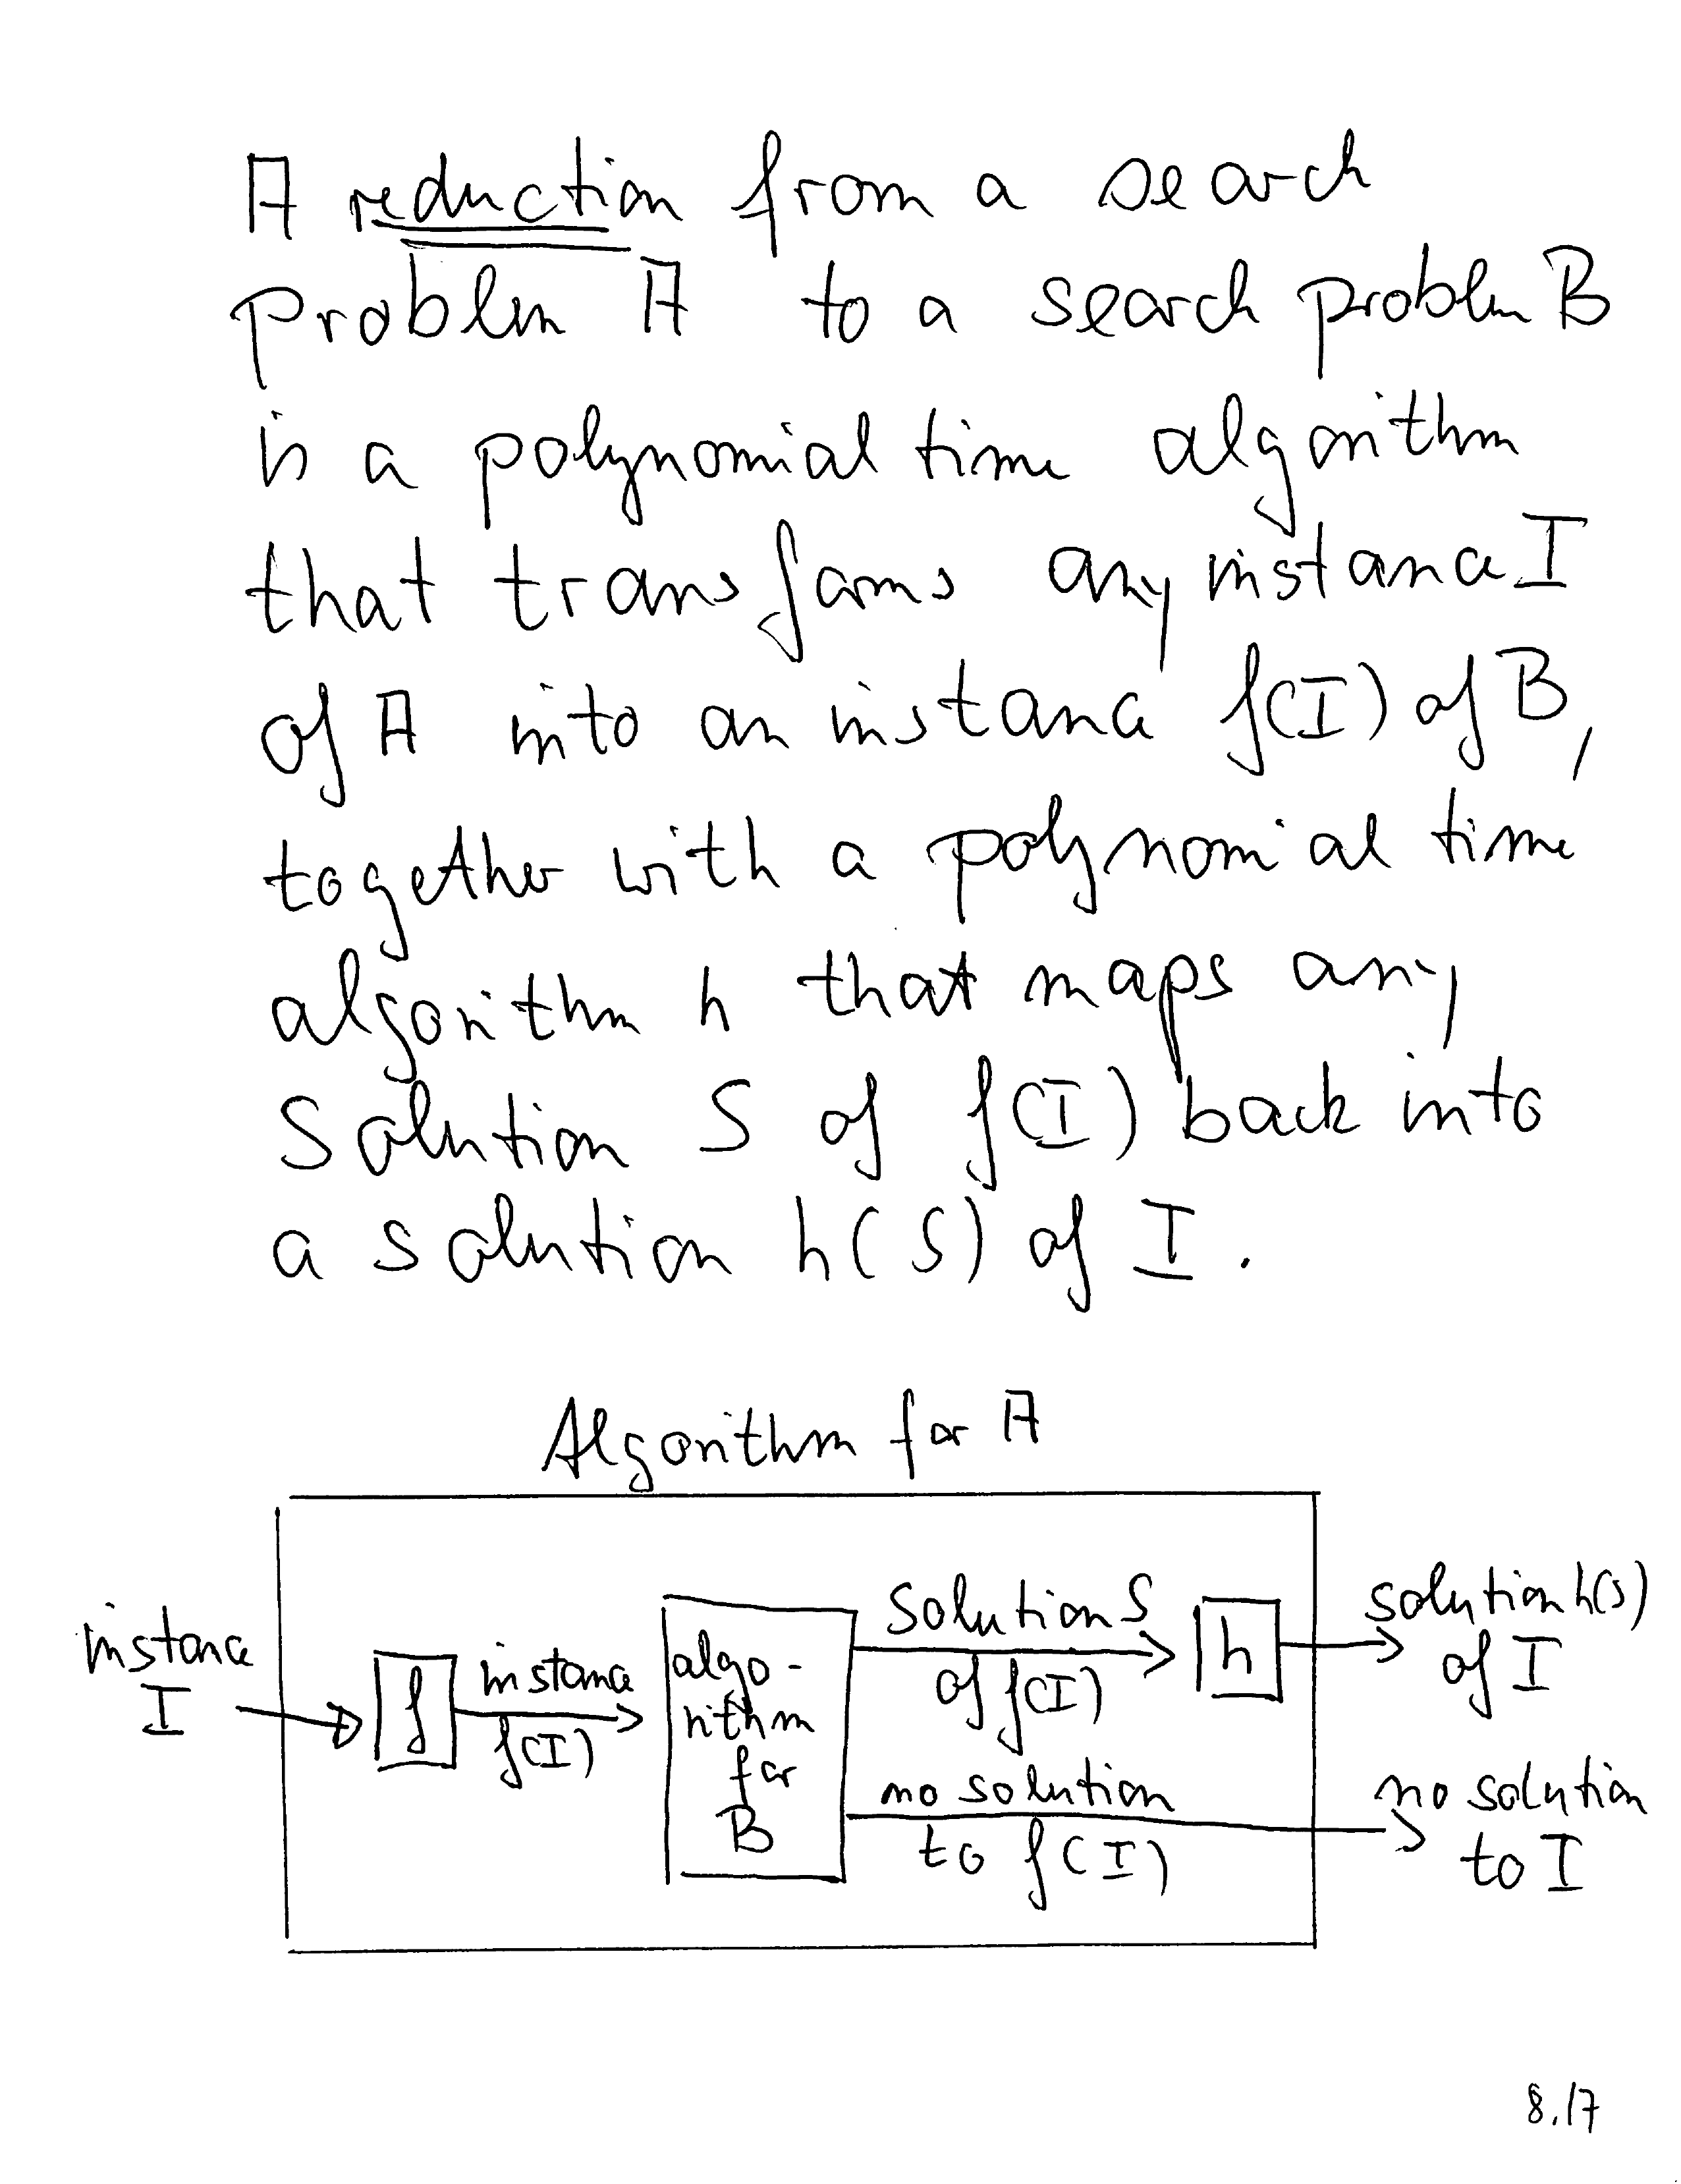 A reduction from a search
problem A to a search problem B
is a polynomial time algorithm
that transforms any instance I
of A into an instance f(I) of B,
together with a polynomial time
algorithm h that maps any
solution S of f(I) back into
a solution h(S) of I.
Algorithm for A
instance
I
f
instance
f(I)
algo-
rithm
for
B
solution S
of f(I)
h
solution h(S)
of I
no solution
to f(I)
no solution
to I
8.17